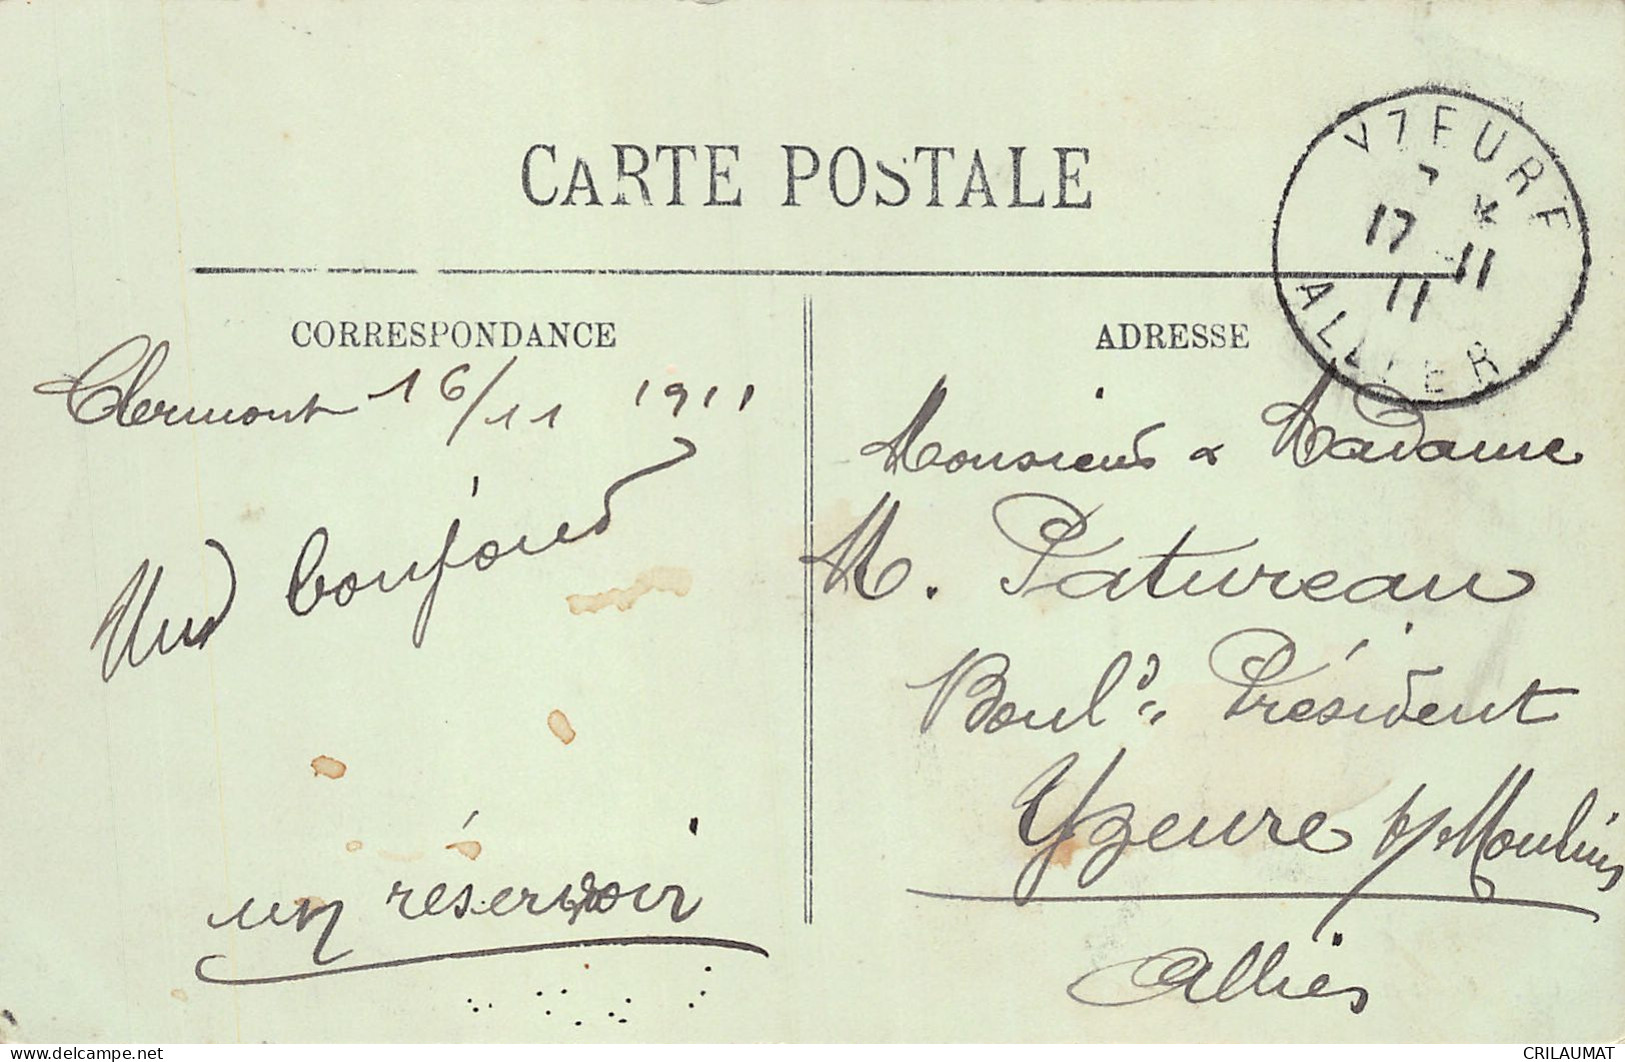 CARTE POSTALE
YZEURE
7 *
17 - 11
11
ALLIER
CORRESPONDANCE
Clermont 16/11 1911
Un bonjour
un réservoir
ADRESSE
Monsieur & Madame
M. Patureau
Boul.d Président
Yzeure s/Moulins
Allier
CRILAUMAT